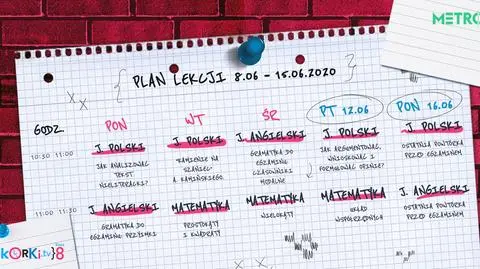 METRO
PLAN LEKCJI 8.06 - 15.06.2020
GODZ.
PON
WT
ŚR
PT 12.06
PON 16.06
10:30 11:00
J. POLSKI
JAK ANALIZOWAĆ
TEKST
NIELITERACKI?
J. POLSKI
KAMIENIE NA
SZANIEC
A. KAMIŃSKIEGO
J. ANGIELSKI
GRAMATYKA DO
EGZAMINU:
CZASOWNIKI
MODALNE
J. POLSKI
JAK ARGUMENTOWAĆ,
WNIOSKOWAĆ I
FORMUŁOWAĆ OPINIE?
J. POLSKI
OSTATNIA POWTÓRKA
PRZED EGZAMINEM
11:00 11:30
J. ANGIELSKI
GRAMATYKA DO
EGZAMINU: PRZYIMKI
MATEMATYKA
PROSTOKĄTY
I KWADRATY
MATEMATYKA
WIELOKĄTY
MATEMATYKA
UKŁAD
WSPÓŁRZĘDNYCH
J. ANGIELSKI
OSTATNIA POWTÓRKA
PRZED EGZAMINEM
KORKI.tv 8